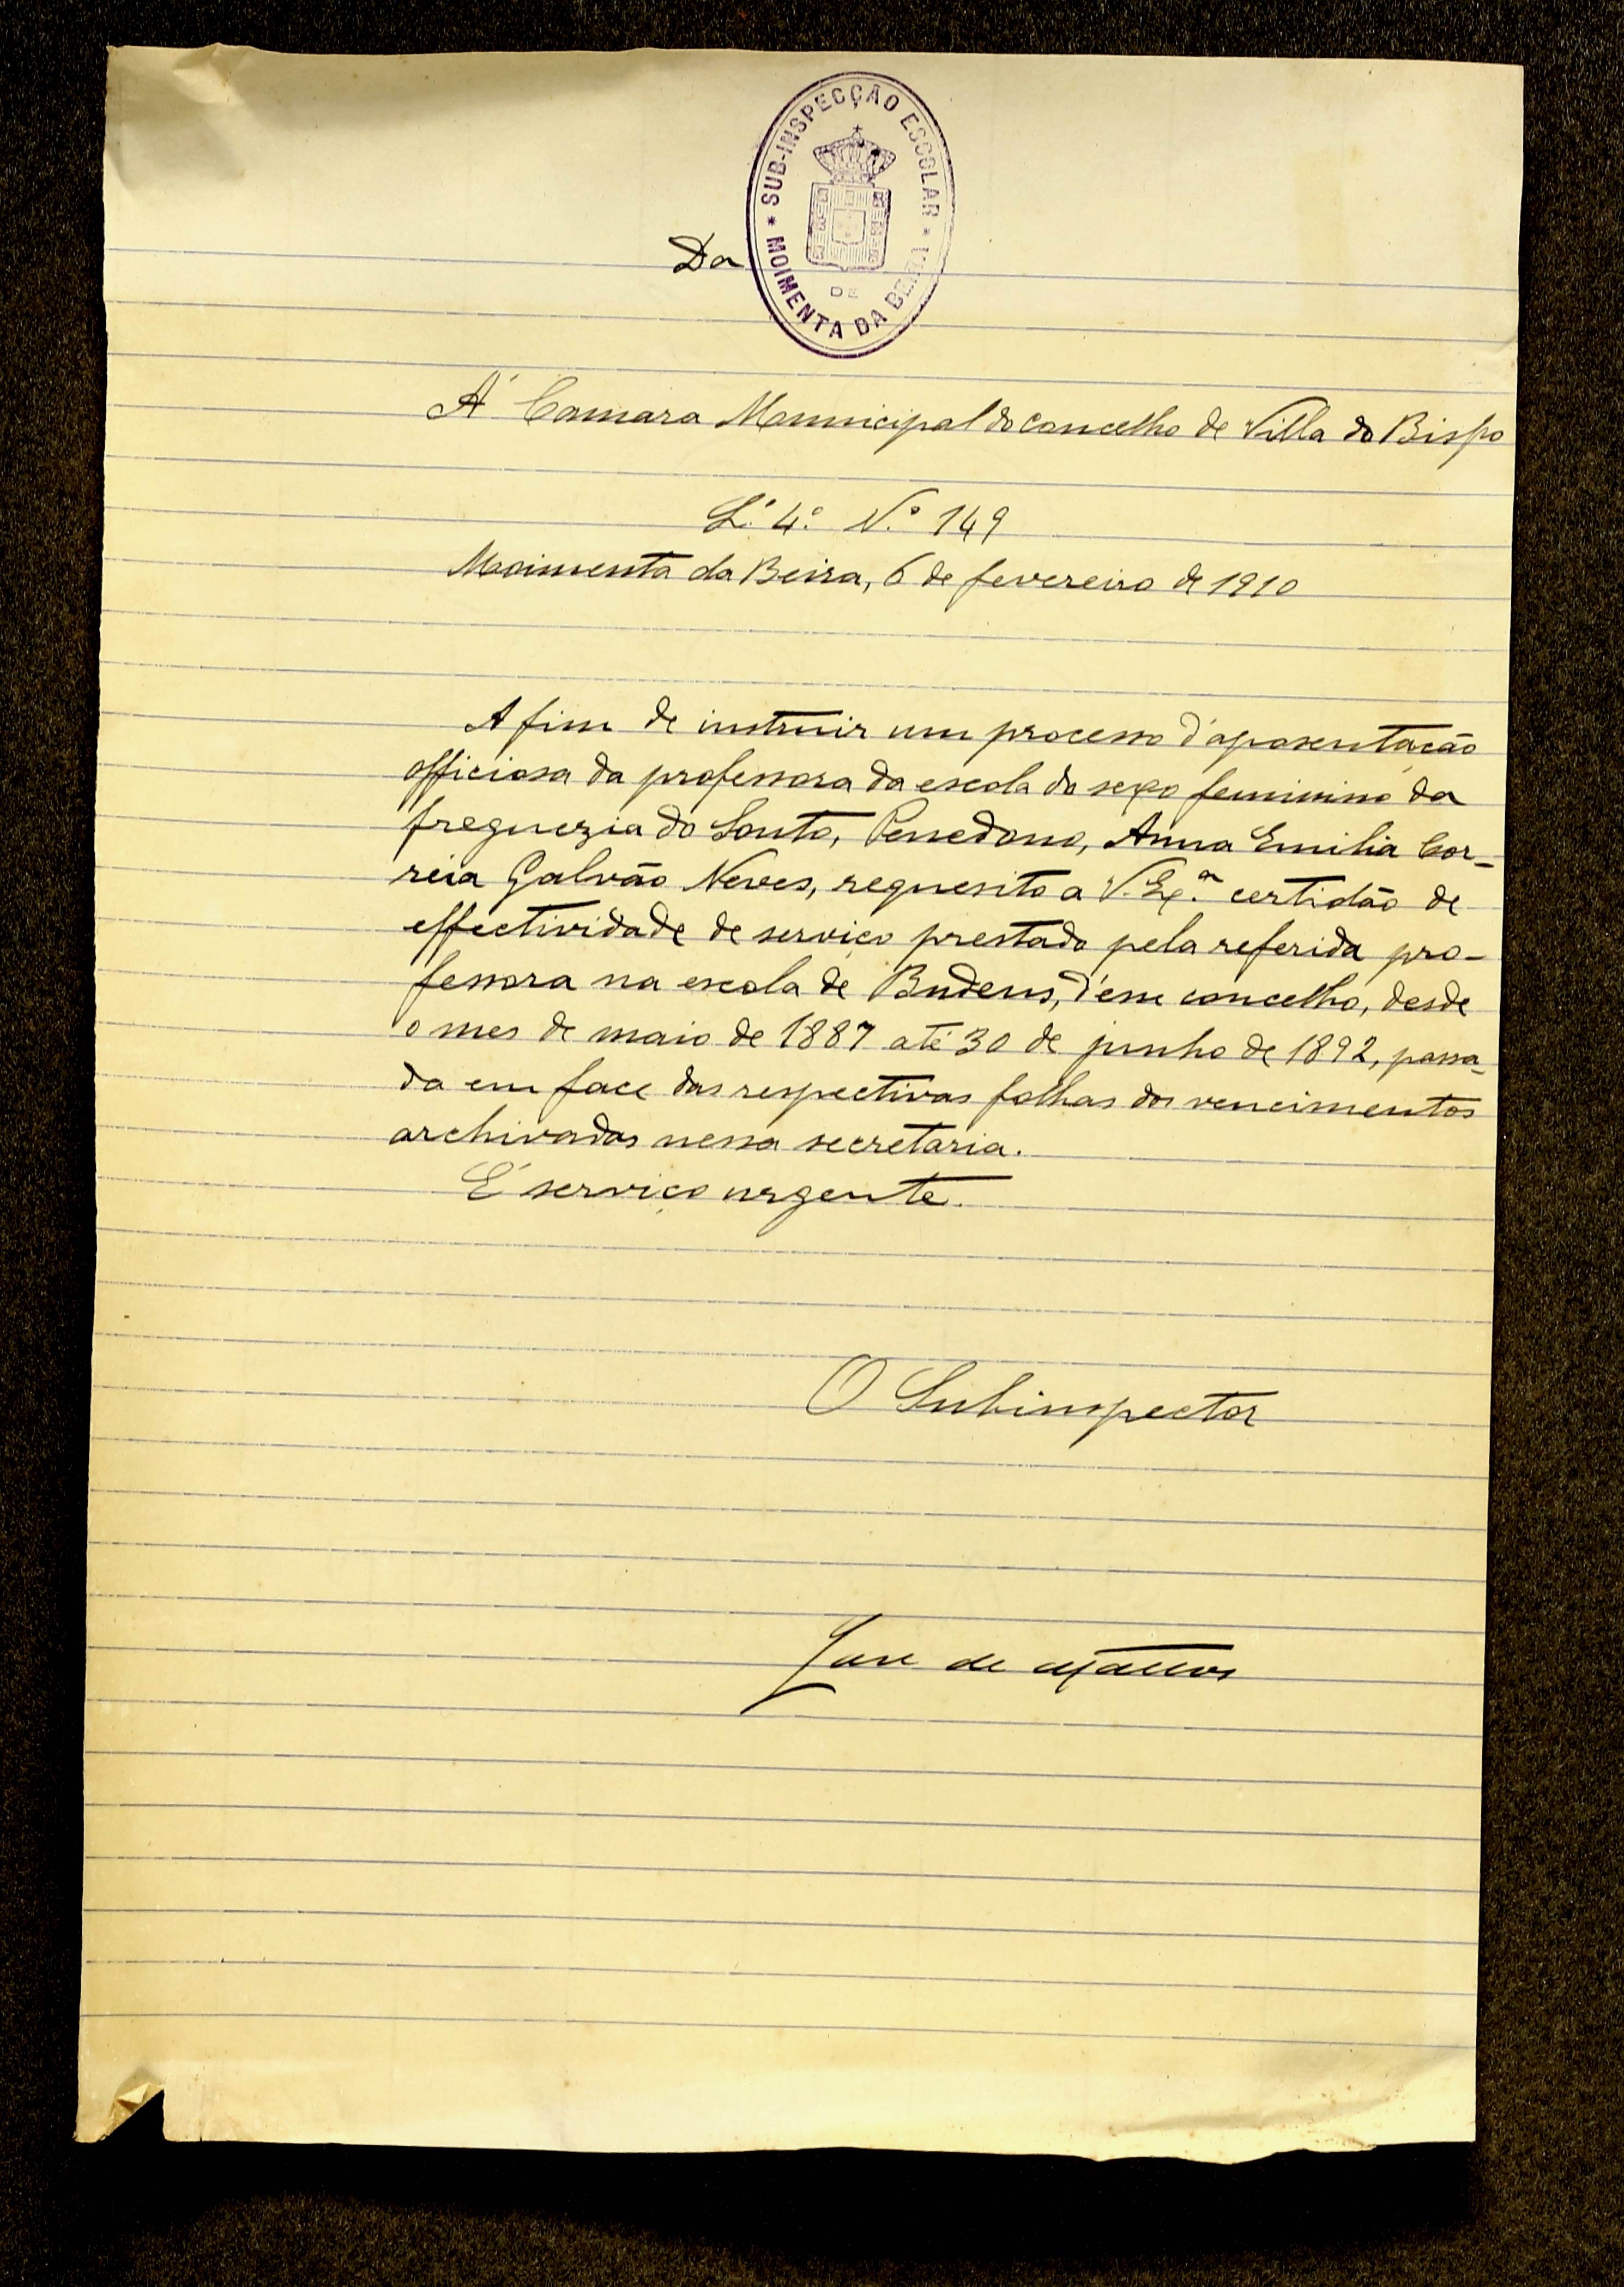 SUB-INSPECÇÃO ESCOLAR * MOIMENTA DA BEIRA *
DE
Da
Á Camara Municipal do concelho de Villa do Bispo
L.º 4.º N.º 149
Moimenta da Beira, 6 de fevereiro de 1910
A fim de instruir um processo d'aposentação
officiosa da professora da escola do sexo feminino da
freguezia do Souto, Penedono, Anna Emilia Cor-
reia Galvão Neves, requesito a V. Ex.ª certidão de
effectividade de serviço prestado pela referida pro-
fessora na escola de Budens, d'esse concelho, desde
o mes de maio de 1887 até 30 de junho de 1892, passa-
da em face das respectivas folhas dos vencimentos
archivadas nessa secretaria.
É serviço urgente.
O Subinspector
José de Mattos